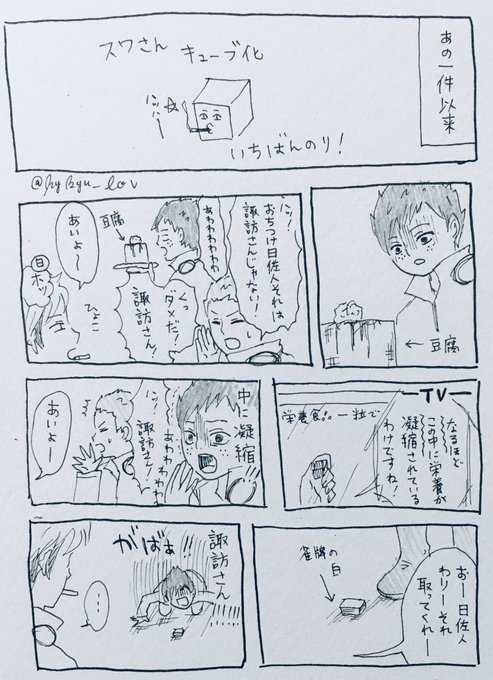 あの一件以来
スワさん
キューブ化
いちばんのり!
←豆腐
ハッ!
おちつけ日佐人それは
諏訪さんじゃない!
あわわわわわ
豆腐
くっ
ダメだ!
諏訪さん!
あいよ〜
ホッ
ひょこ
TV
なるほど
この中に栄養が
凝縮されている
わけですね!
一粒で
中に凝縮
あわわわわ
ハッ!
諏訪さん!
あいよー
おー日佐人
わりーそれ
取ってくれー
雀牌の白
諏訪さん
がばぁ!
…